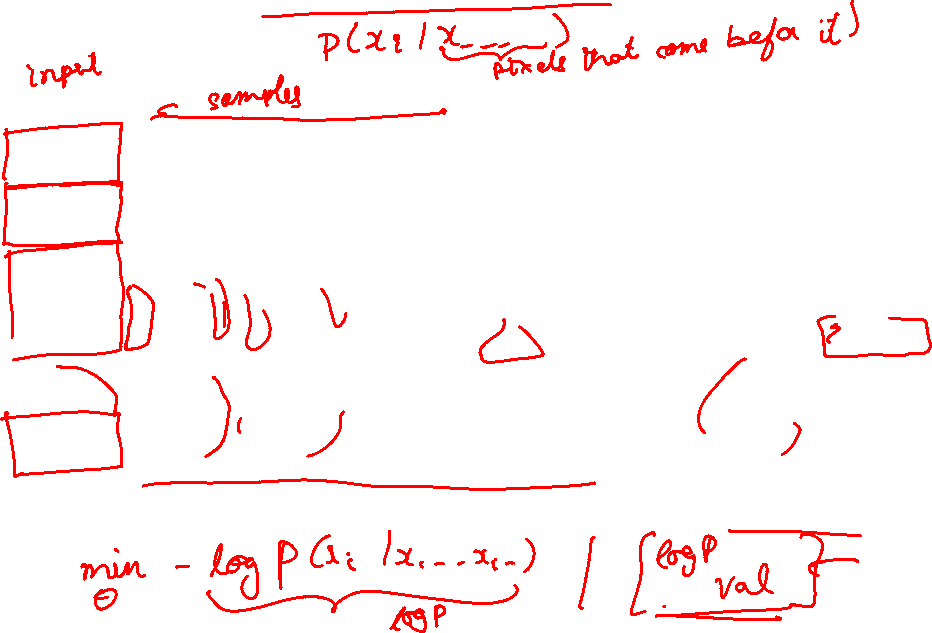 P(xi / x - - - )
pixels that come befor it)
input
samples
min - log P(xi / x. - - xi - )  /  [ log P
θ
val ]
log P